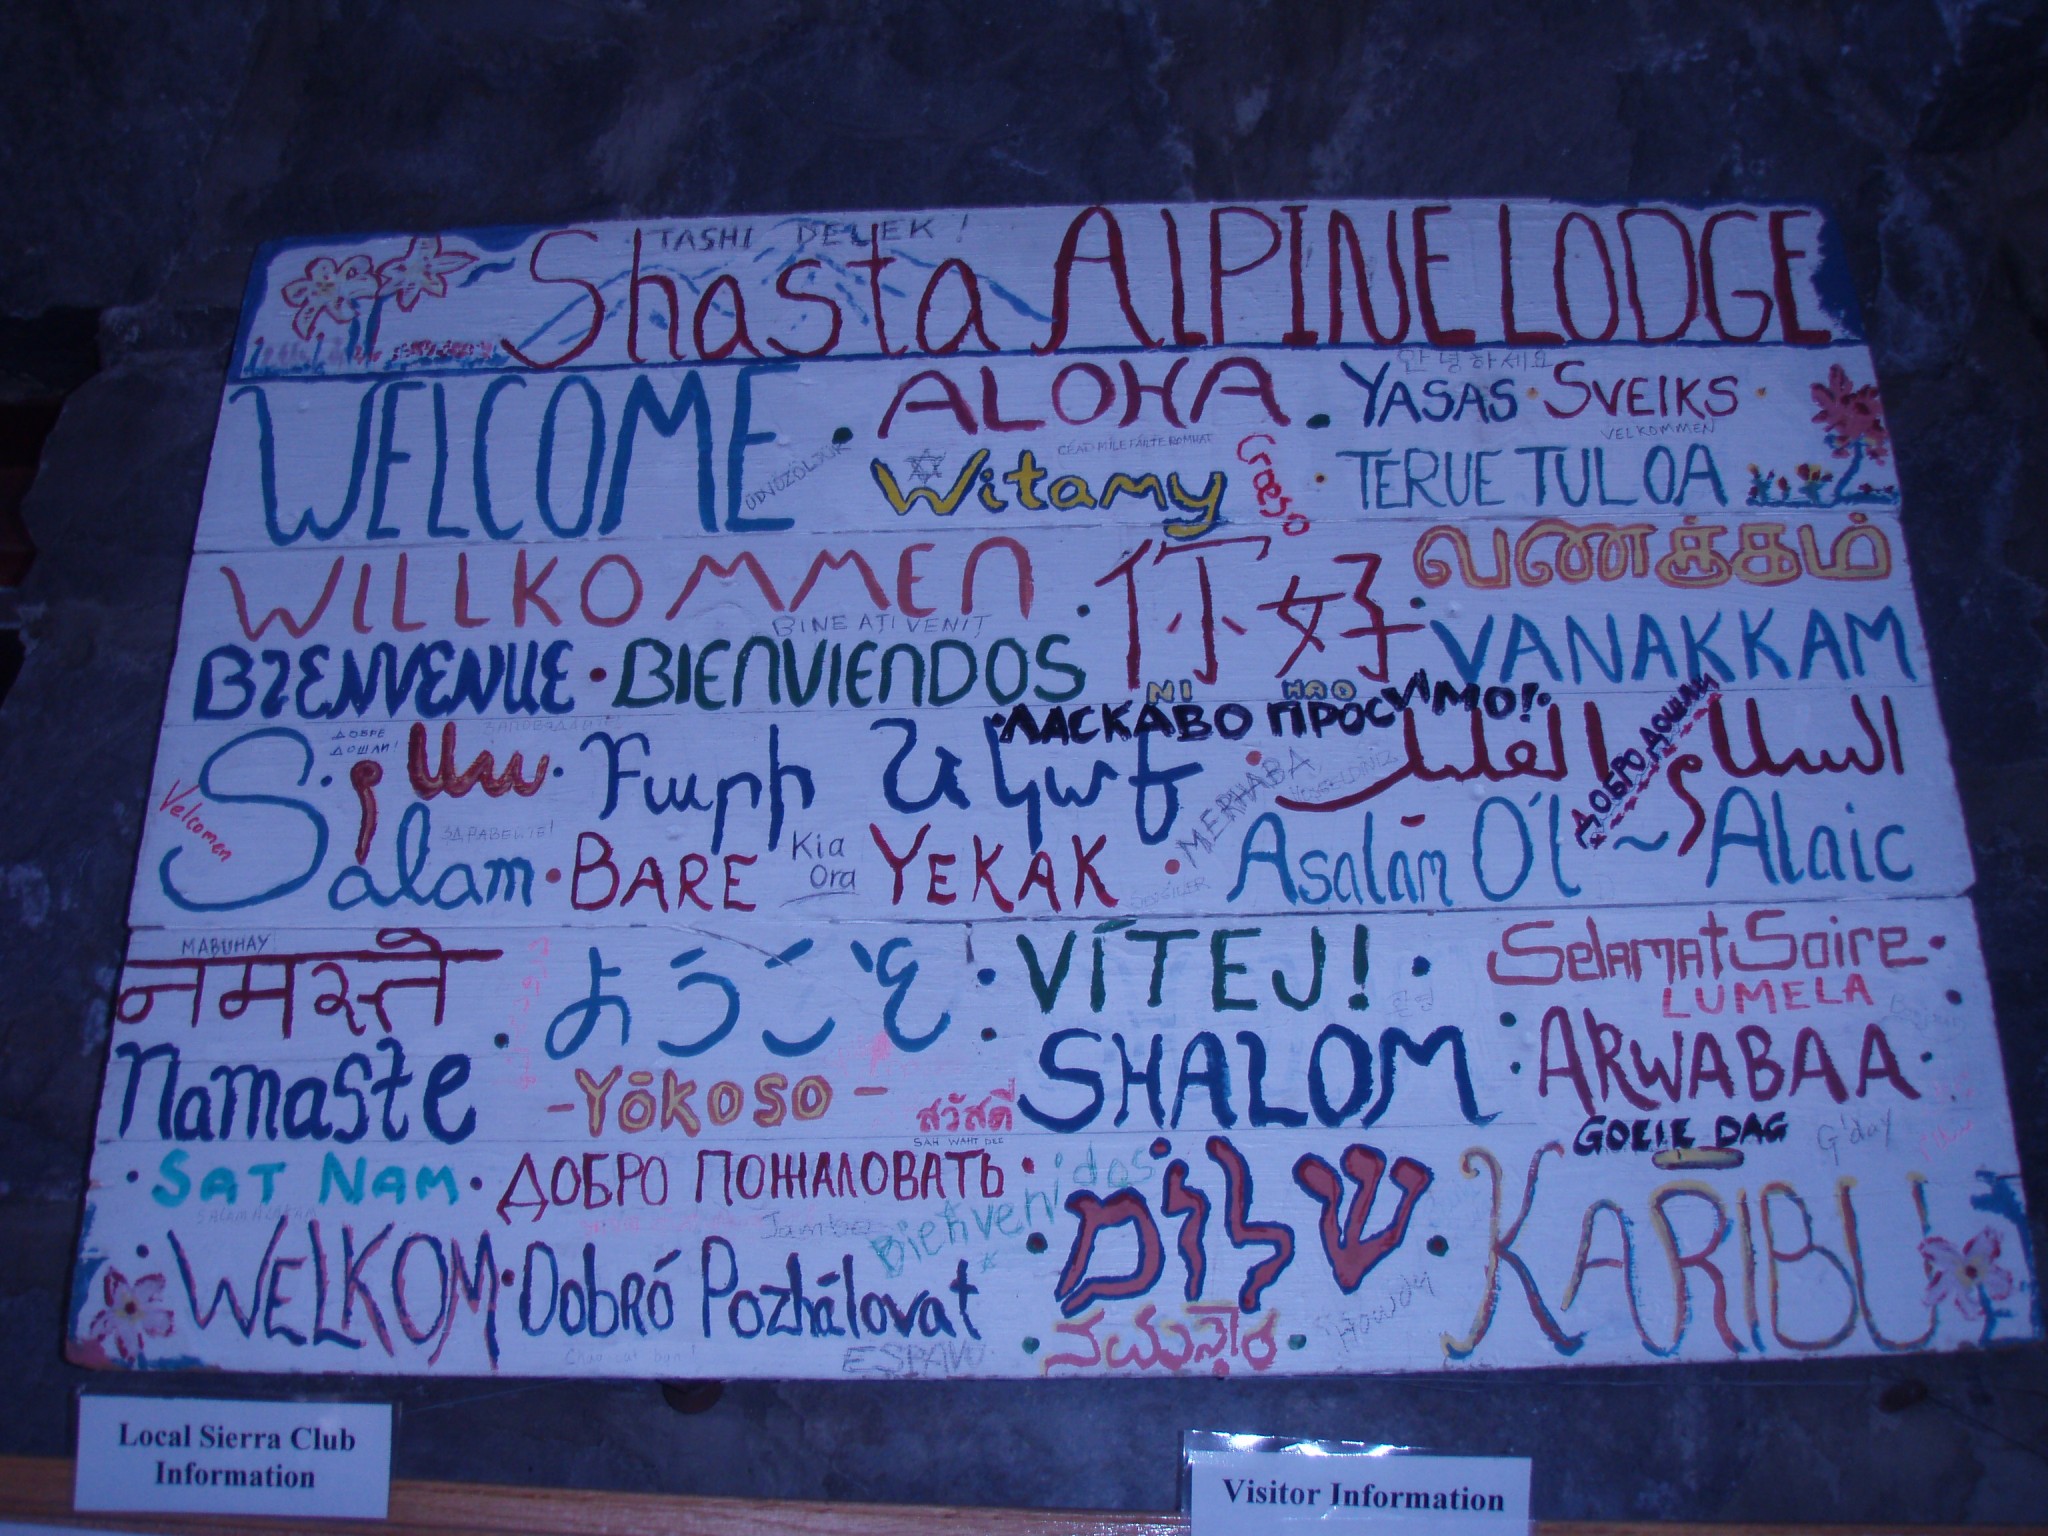 TASHI DELEK!
Shasta ALPINE LODGE
안녕하세요
WELCOME · ALOHA · YASAS · SVEIKS ·
VELKOMMEN
ÜDVÖZÖLJÜK
CÉAD MÍLE FÁILTE ROMHAT
Witamy
Croeso
· TERVE TULOA
WILLKOMMEN · 你好 · வணக்கம்
BINE AȚI VENIT
BIENVENUE · BIENVIENDOS
NI HAO
VANAKKAM
ЛАСКАВО ПРОСИМО!
ДОБРЕ ДОШЛИ!
ДОБРО ДОШЛИ
سلام · Բարի Եկաք
السلام علیکم
Velcomen
ЗДРАВЕЙТЕ!
MERHABA
Salam · BARE YEKAK · Asalām O'l ~ Alaic
Kia Ora
MABUHAY!
नमस्ते · ようこそ · VÍTEJ! · Selamat Soire ·
LUMELA
Namaste - YŌKOSO - SHALOM · AKWABAA ·
สวัสดี
SAH WAHT DEE
GOEIE DAG
G'day
· SAT NAM · ДОБРО ПОЖАЛОВАТЬ ·
Jambo
Bienvenidos
שלום
KARIBU
· WELKOM · Dobró Pozhálovat
HOWDY
ESPAVO
Local Sierra Club
Information
Visitor Information